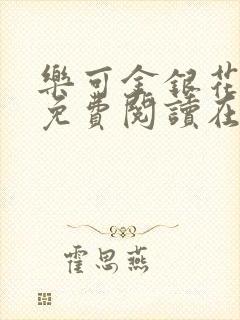 樂可金銀花
免費閱讀在
霍思燕